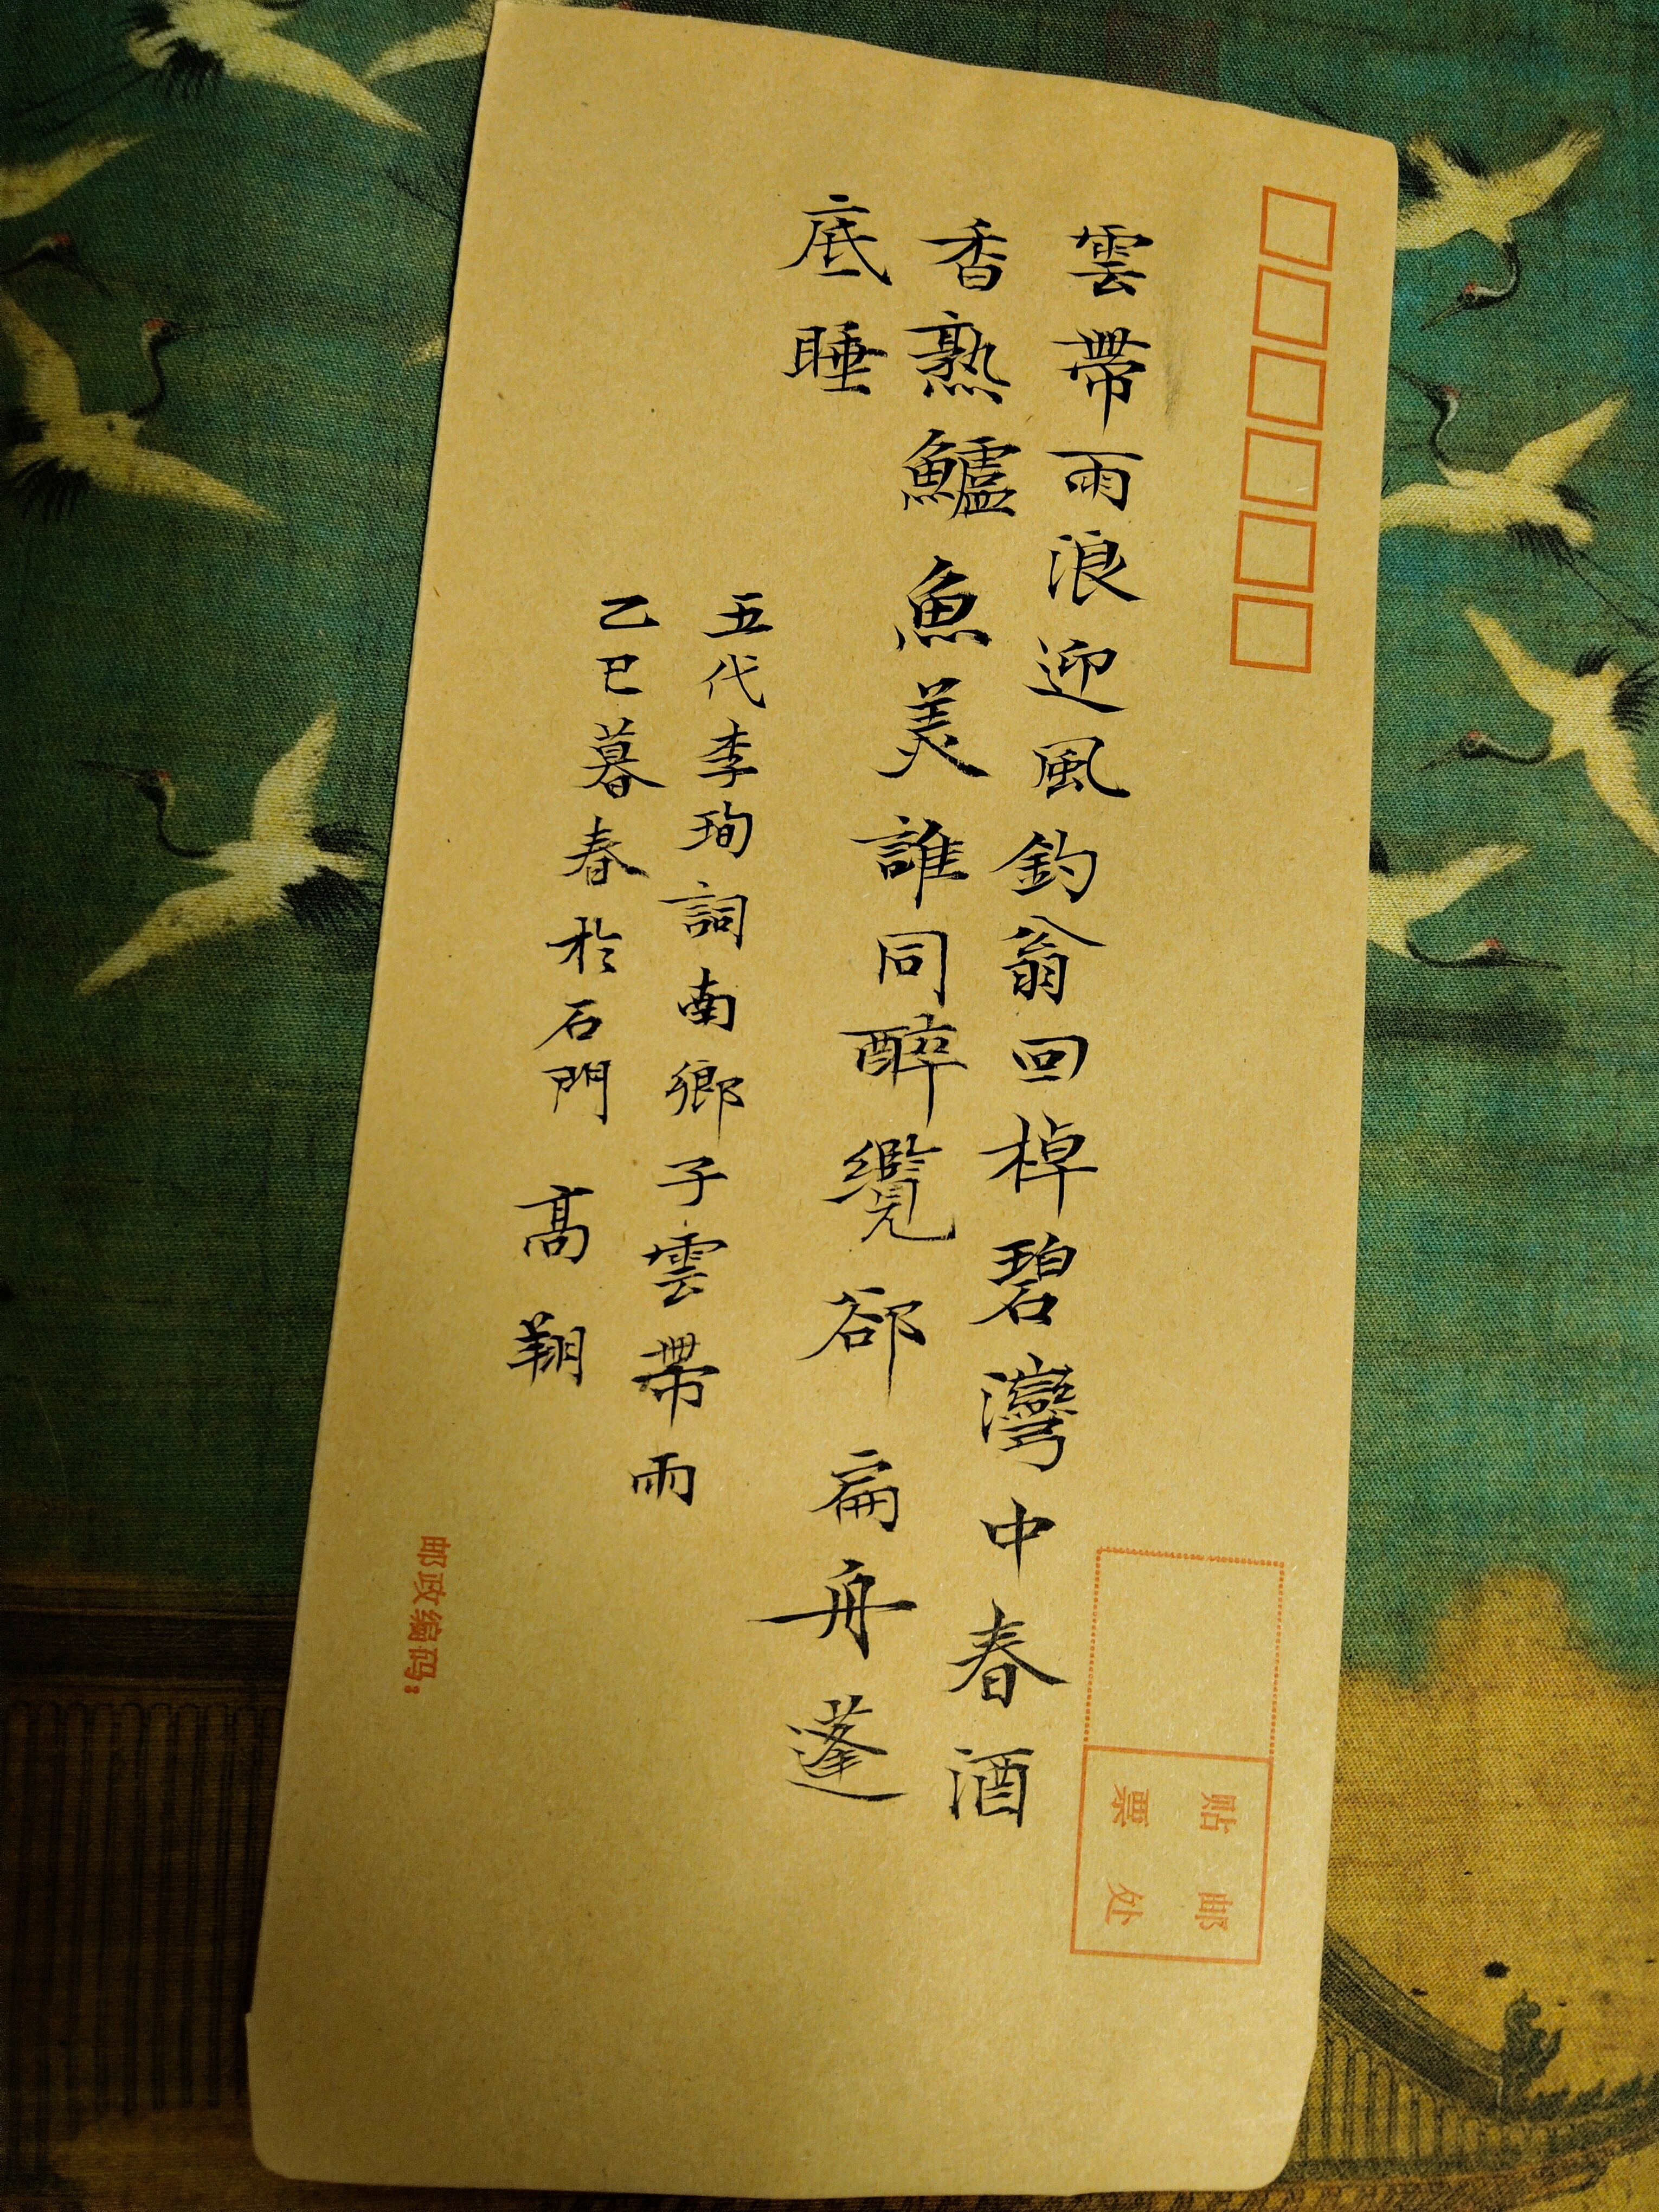 雲帶雨浪迎風釣翁回棹碧灣中春酒
香熟鱸魚美誰同醉纜郤扁舟蓬
底睡
五代李珣詞南鄉子雲帶雨
乙巳暮春於石門 高翔
贴邮
票处
邮政编码: